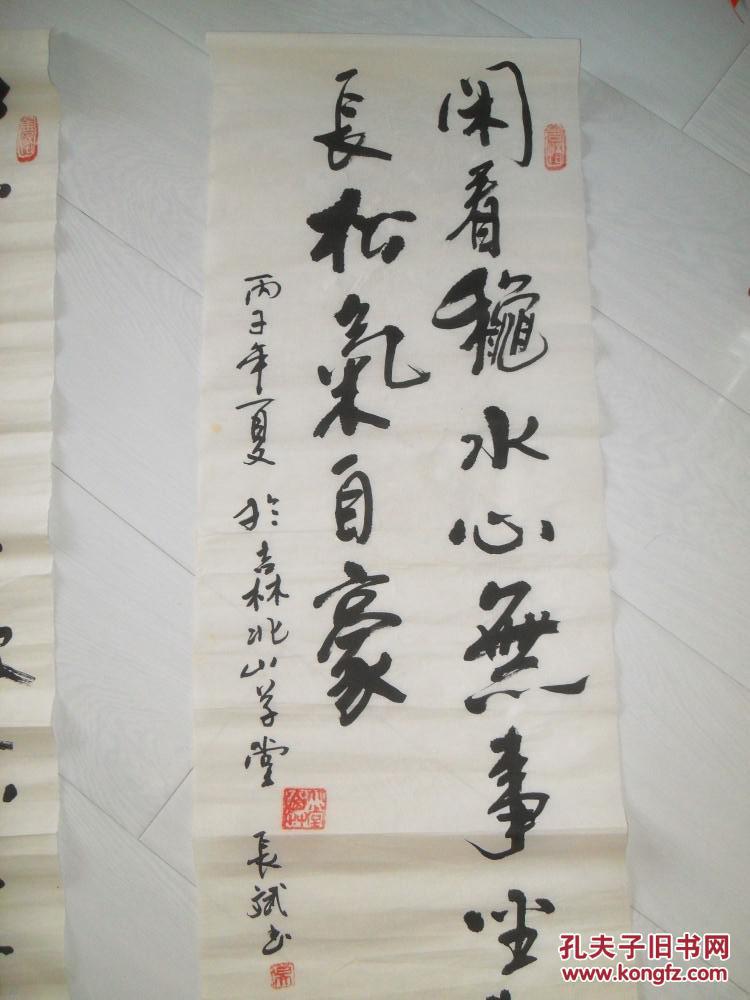 闲看穐水心無事坐
長松氣自豪
丙子年夏 於吉林北山草堂 長斌书
孔夫子旧书网
www.kongfz.com